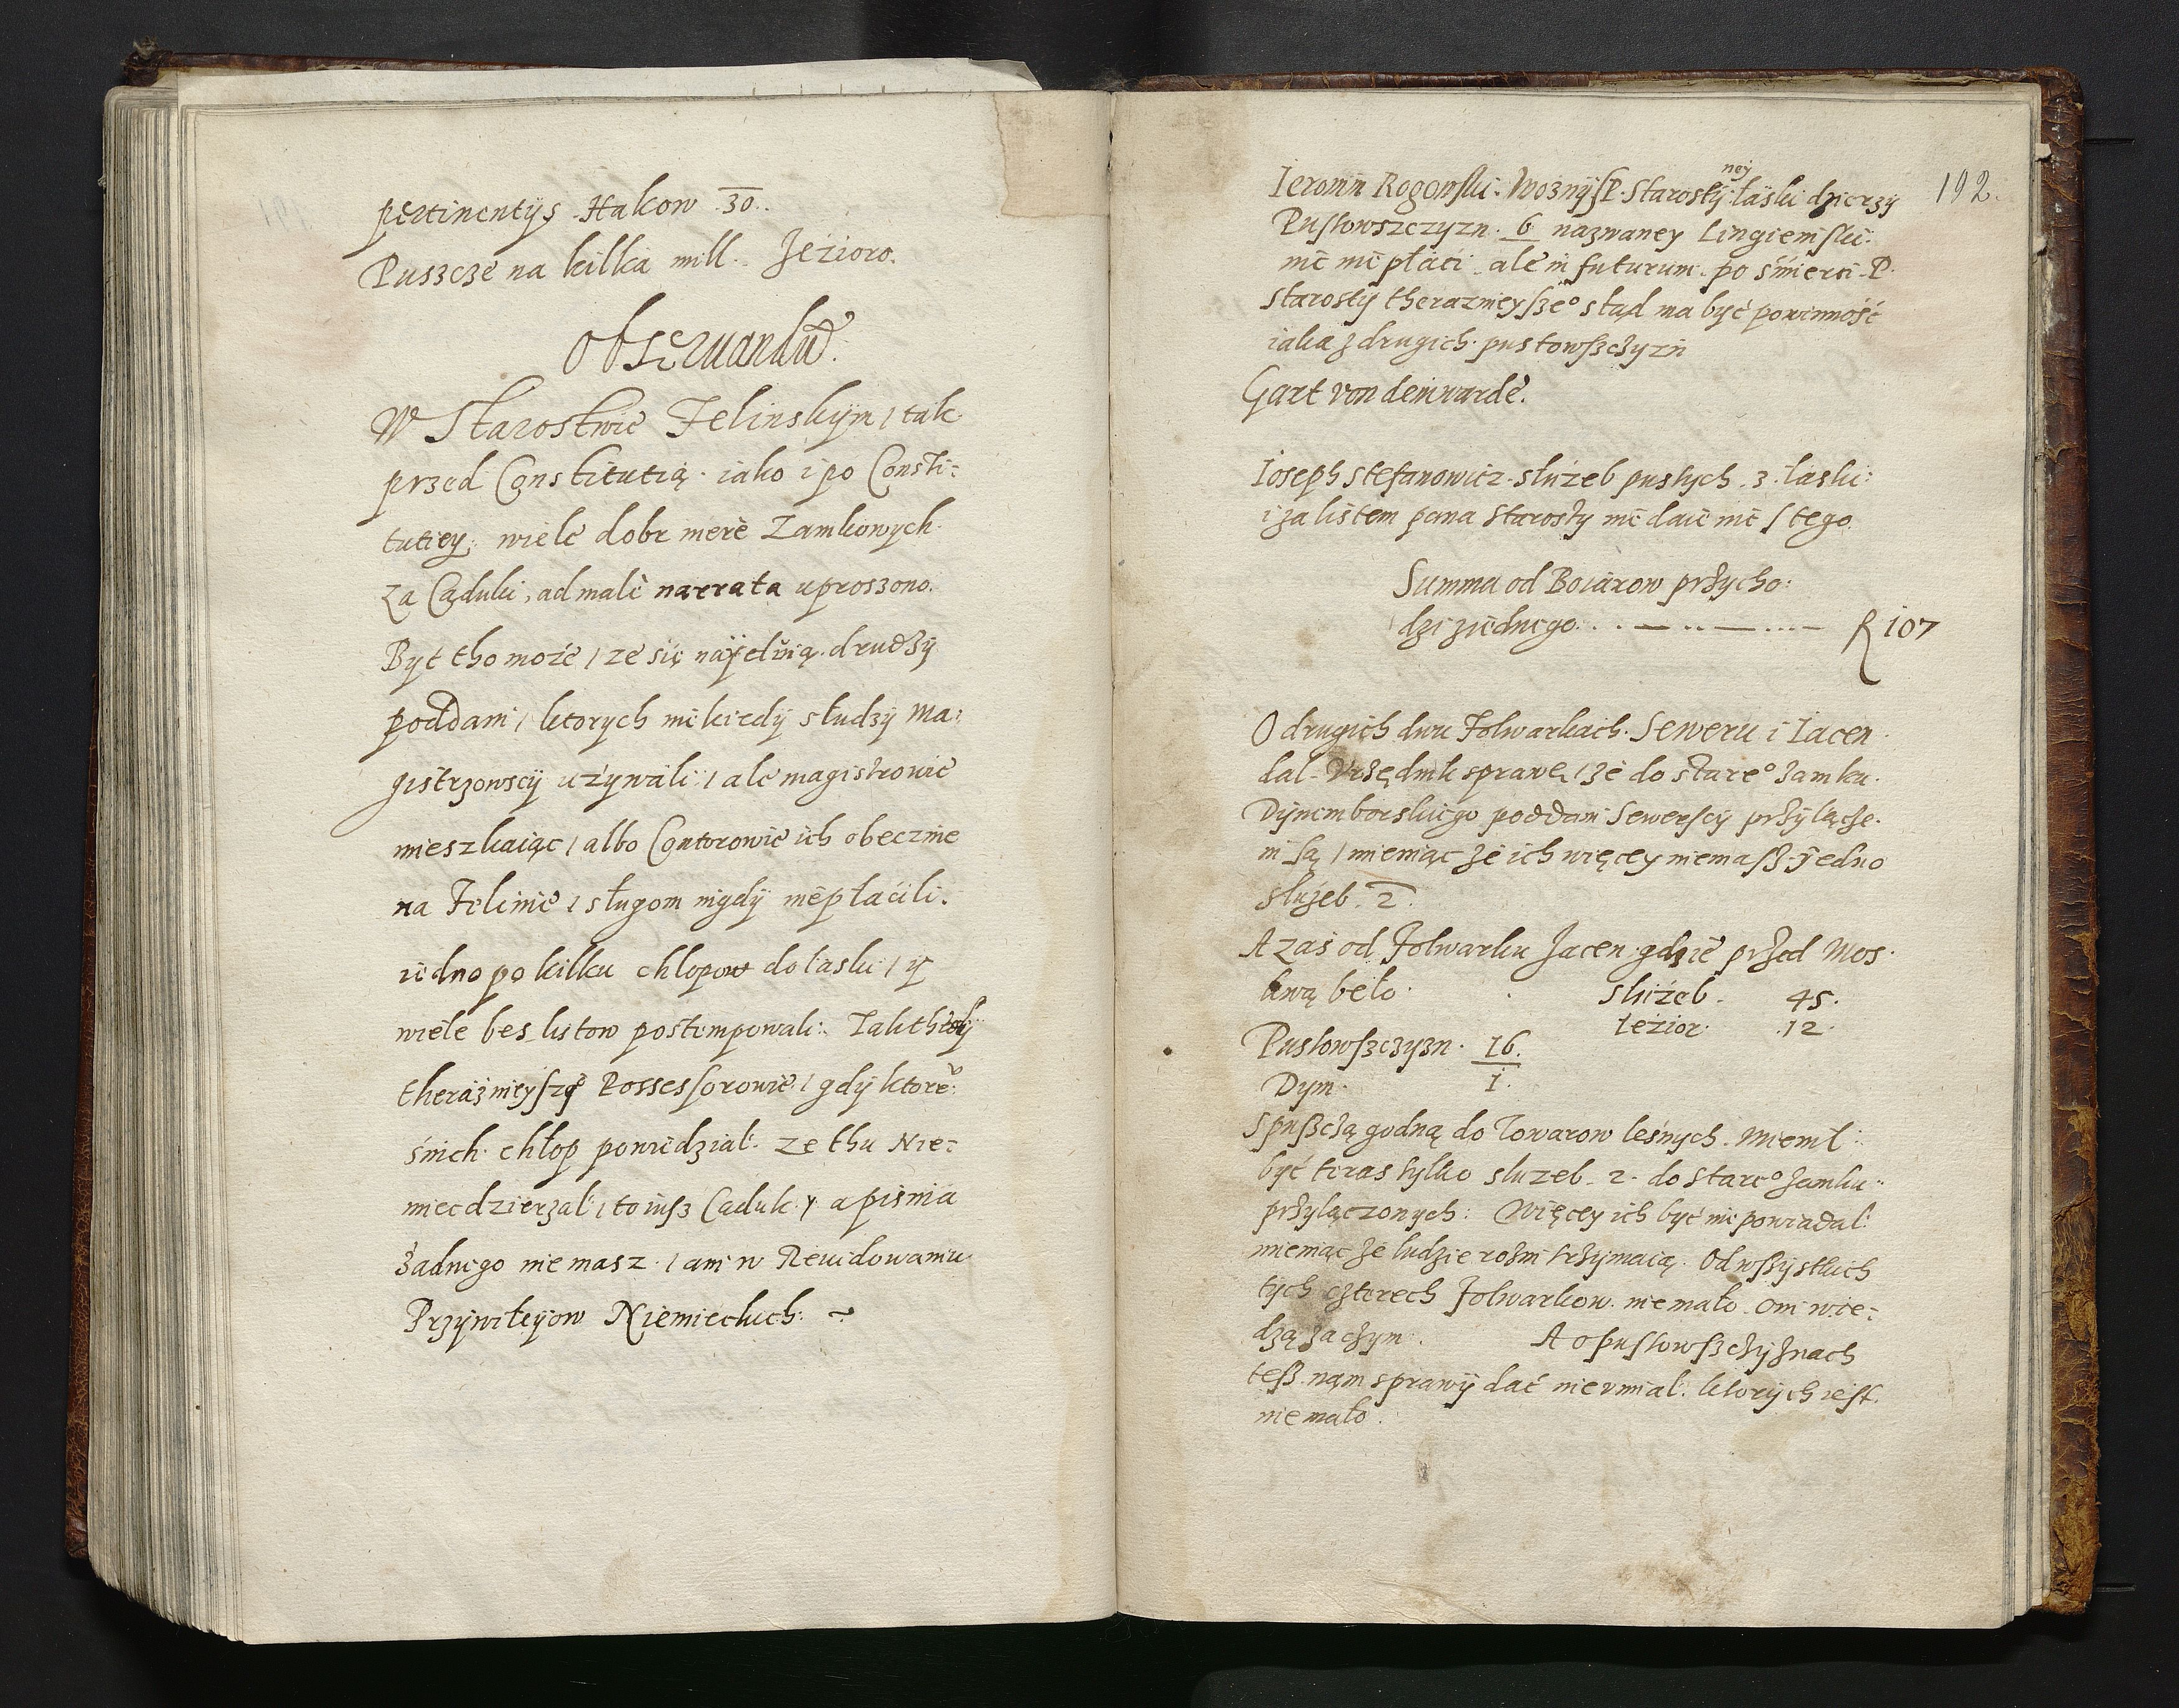 pertinentijs. Hakow .30..
Puszcze na kilka mill. Jezioro.
Obseruandũ.
W Starostwie Felinskijm / tak
przed Constitutią. iako i po Consti-
tutiey. wiele dobr merè Zamkowych
Za Caduki, ad malè narrata uproszono.
Byt tho może / ze się drudzÿ
poddani / ktorych nikiedÿ słudzÿ Ma-
gistrzowscÿ użÿwali / ale magistrowie
mieszkaiąc / albo Contorowie ich obecznie
na Felinie / sługom nigdÿ niepłaćili.
iedno po kilku chlopow do łaski / ÿ
wiele bes listow postempowali. Tak
theraznieÿszÿ Possessorowie / gdÿ ktorẽ
śnich chłop powiedział. ze thu Nie-
miec dzierzal / to iusz Caduk y a pisma
żadnego nie masz / ani w Rewidowaniu
Przÿwileÿow Niemieckich. ~
192.
Ieronim Rogonski. Woźnÿ P. Starostÿ łaski dzierzÿ
ney
Pustowszczyzn. 6 nazwaney Lingiemski.
nic nie płaci. ale in futurum. po śmierci P.
Starostÿ therazneyszeº stąd ma być powinność
iaka z drugich. pustowszczyzn
Gart von deinwarde.
Ioseph Stefanowicz. służeb pustych .3. łaski.
i za listem pana Starosty nie daie nic stego.
Summa od Boiarow przycho-
dzi ziednego. . . — .. — .... — R 107
O drugich dwu Folwarkach. Seweru i Iacen
dal Vrzędnik sprawę / że do stareº zamku.
Dÿnemborskiego poddani Sewerscÿ przÿłącze-
ni są / mieniąc że ich więceÿ niemasz jedno
służeb .2.
A zaś od Folwarku Jacen. gdzie przed Mos-
kwą beło. służeb. 45.
Iezior. .12.
Pustowszczyzn. 16.
Dym. 1.
S puszczą godną do Towarow leśnych. mienił
być teras tylko sluzeb. 2. do stareº zamku
przyłączonych. Więcey ich być nie powiadał
mieniąc że ludzie rożni trzymaią. Od wszÿstkich
tÿch czterech Folwarkow. niemało. oni wie-
dzą za czym. A o pustowszczÿznach
tesz nam sprawÿ dać nie vmiał. ktorÿch iest.
nie mało.